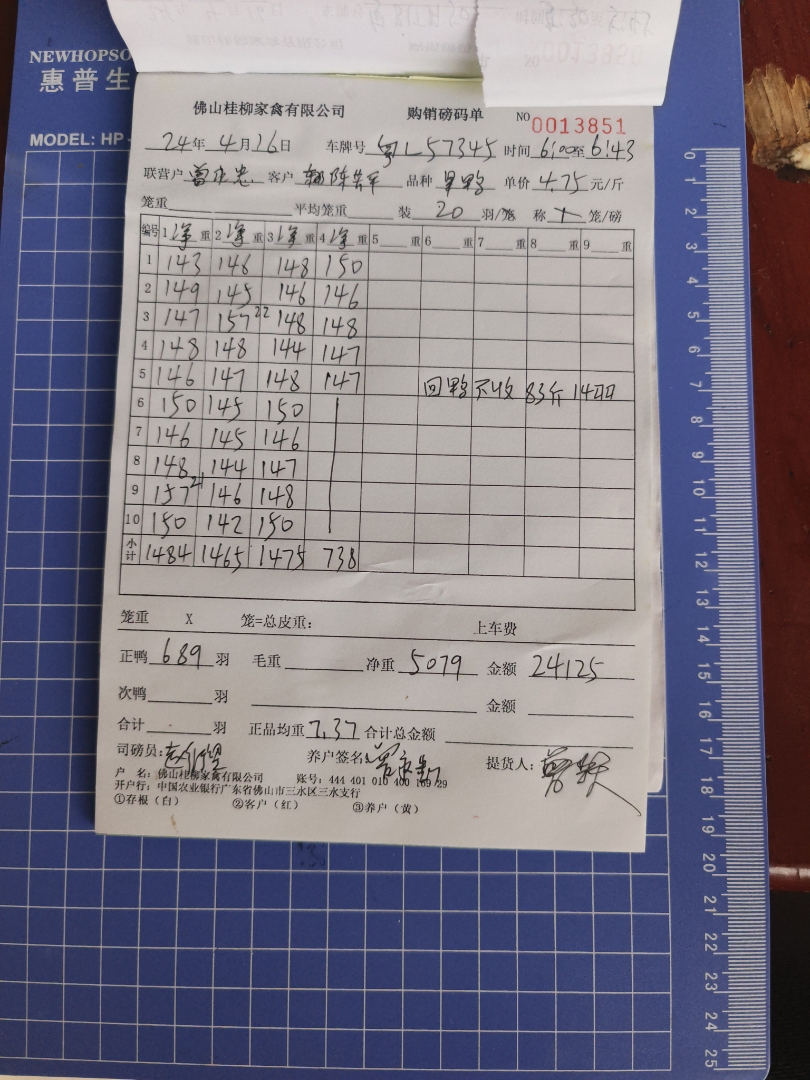 NEWHOPSO
惠普生
MODEL: HP-
佛山桂柳家禽有限公司 购销磅码单 NO 0013851
24年 4月26日 车牌号 粤L57345 时间 6:00至6:43
联营户 客户 品种 单价 4.75 元/斤
笼重 平均笼重 装 20 羽/笼 称 笼/磅
编号 1 净 重 2 净 重 3 净 重 4 净 重 5 重 6 重 7 重 8 重 9 重
1 143 146 148 150
2 149 145 146 146
3 147 157 22 148 148
4 148 148 144 147
5 146 147 148 147 回鸭不收 83斤 14羽
6 150 145 150
7 146 145 146
8 148 144 147
9 157 21 146 148
10 150 142 150
小计 1484 1465 1475 738
笼重 X 笼=总皮重: 上车费
正鸭 689 羽 毛重 净重 5079 金额 24125
次鸭 羽 金额
合计 羽 正品均重 7.37 合计总金额
司磅员: 养户签名: 提货人:
户 名: 佛山桂柳家禽有限公司 账号: 444 401 010 400 169 29
开户行: 中国农业银行广东省佛山市三水区三水支行
①存根（白） ②客户（红） ③养户（黄）
0
1
2
3
4
5
6
7
8
9
10
11
12
13
14
15
16
17
18
19
20
21
22
23
24
25